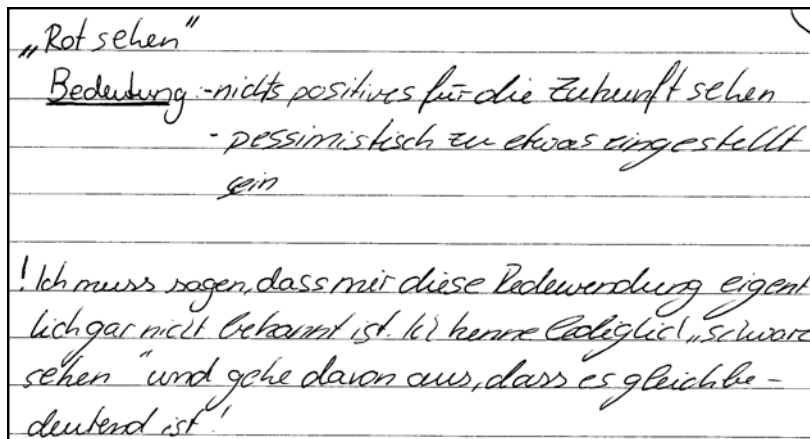 „Rot sehen"
Bedeutung: -nichts positives für die Zukunft sehen
- pessimistisch zu etwas eingestellt
sein
! Ich muss sagen, dass mir diese Redewendung eigent
lich gar nicht bekannt ist. Ich kenne lediglich „schwarz
sehen" und gehe davon aus, dass es gleichbe-
deutend ist!